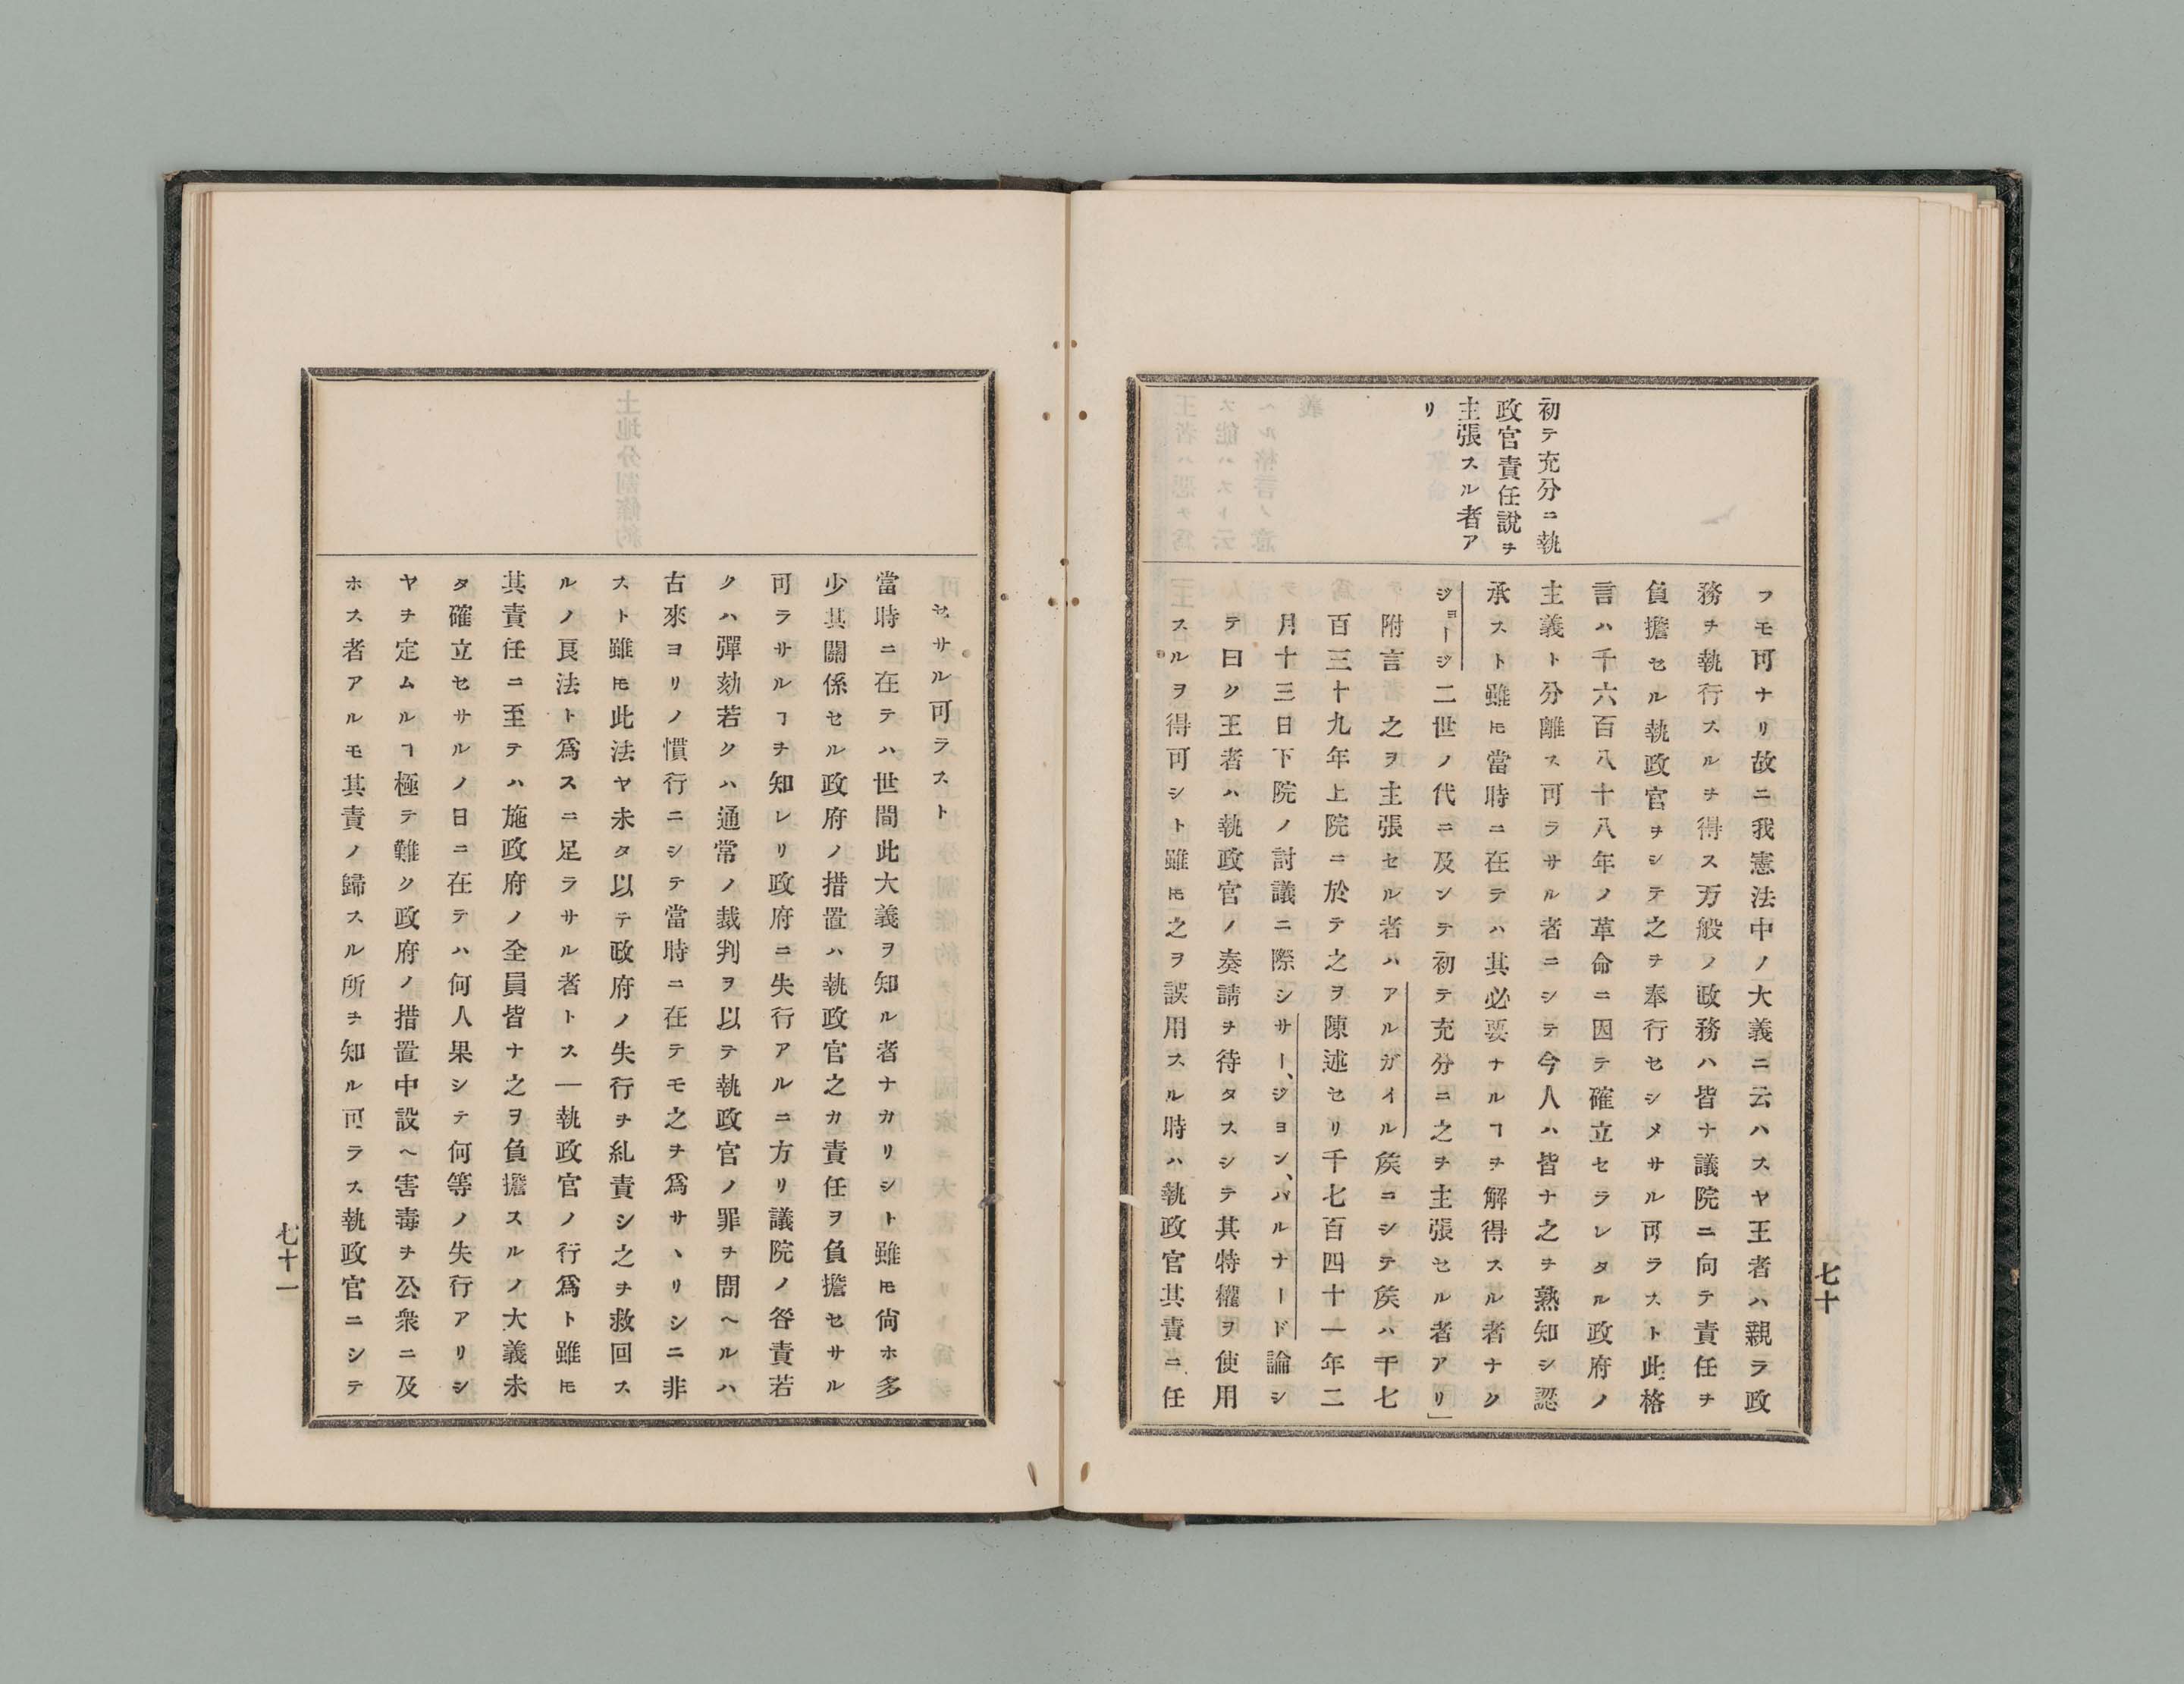 初テ充分ニ執
政官責任說ヲ
主張スル者ア
リ
フモ可ナリ故ニ我憲法中ノ大義ニ云ハスヤ王者ハ親ラ政
務ヲ執行スルヲ得ス万般ノ政務ハ皆ナ議院ニ向テ責任ヲ
負擔セル執政官ヲシテ之ヲ奉行セシメサル可ラスト此格
言ハ千六百八十八年ノ革命ニ因テ確立セラレタル政府ノ
主義ト分離ス可ラサル者ニシテ今人ハ皆ナ之ヲ熟知シ認
承スト雖𪜈當時ニ在テハ其必要ナルヿヲ解得スル者ナク
ジョージ二世ノ代ニ及ンテ初テ充分ニ之ヲ主張セル者アリ」
附言 之ヲ主張セル者ハアルガイル矦ニシテ矦ハ千七
百三十九年上院ニ於テ之ヲ陳述セリ千七百四十一年二
月十三日下院ノ討議ニ際シサー、ジヨン、バルナード論シ
テ曰ク王者ハ執政官ノ奏請ヲ待タスシテ其特權ヲ使用
スルヲ得可シト雖𪜈之ヲ誤用スル時ハ執政官其責ニ任
七十
セサル可ラスト
當時ニ在テハ世間此大義ヲ知ル者ナカリシト雖𪜈尙ホ多
少其關係セル政府ノ措置ハ執政官之カ責任ヲ負擔セサル
可ラサルヿヲ知レリ政府ニ失行アルニ方リ議院ノ咎責若
クハ彈劾若クハ通常ノ裁判ヲ以テ執政官ノ罪ヲ問ヘルハ
古來ヨリノ慣行ニシテ當時ニ在テモ之ヲ爲サヽリシニ非
スト雖𪜈此法ヤ未タ以テ政府ノ失行ヲ糺責シ之ヲ救回ス
ルノ良法ト爲スニ足ラサル者トス一執政官ノ行爲ト雖𪜈
其責任ニ至テハ施政府ノ全員皆ナ之ヲ負擔スルノ大義未
タ確立セサルノ日ニ在テハ何人果シテ何等ノ失行アリシ
ヤヲ定ムルヿ極テ難ク政府ノ措置中設ヘ害毒ヲ公衆ニ及
ホス者アルモ其責ノ歸スル所ヲ知ル可ラス執政官ニシテ
七十一